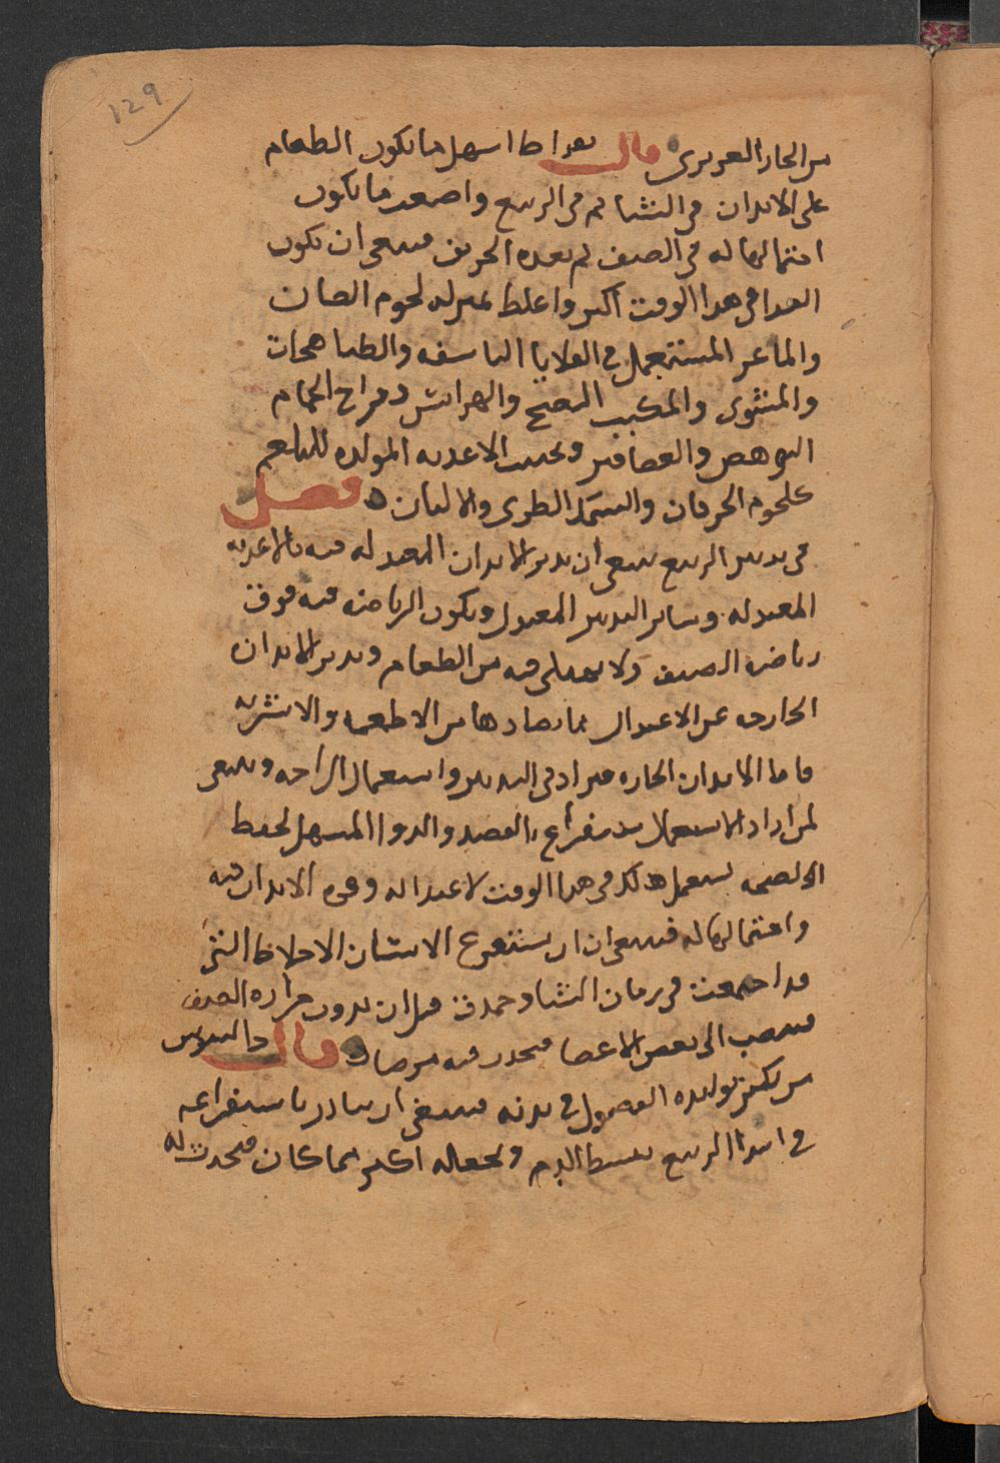 129
من الحار الغريزي قال بقراط اسهل ما يكون الطعام
على الابدان في الشتا ثم في الربيع واصعب ما يكون
احتمالها له في الصيف ثم بعده الخريف فينبغي ان يكون
الغدا في هدا الوقت اكثر واغلظ بمنزله لحوم الضان
والماعز المستعمل في القلايا الناشفه والطباهجات
والمشوي والمكبب النضيج والهرايس وفراخ الحمام
النواهض والعصافير وتجنب الاغديه المولده للبلغم
كلحوم الخرفان والسمك الطري والالبان فصل
في تدبير الربيع ينبغي ان تدبر الابدان المعتدله فيه بالاغديه
المعتدله وساير التدبير المعتدل ويكون الرياضه فيه فوق
رياضه الصيف ولا يمتلى فيه من الطعام وتدبر الابدان
الخارجه عن الاعتدال بما يضادها من الاطعمه والاشربه
فاما الابدان الحاره فيزاد في التبريد واستعمال الراحه وينبغي
لمن اراد الاستعمال الاستفراغ بالفصد والدوا المسهل لحفظ
الصحه يستعمل ذلك في هدا الوقت لاعتداله وقوه الابدان فيه
واحتمالها له فينبغي ان يستفرغ الانسان الاخلاط التي
قد اجتمعت في زمان الشتا وجمدت قبل ان تدوب بحراره الصيف
فينصب الى بعض الاعضا فيحدث فيه مرضا قال جالينوس
من يكثر تولده الفضول في بدنه فينبغي ان يبادر باستفراغه
في ابتدا الربيع ينبسط الدم ويجعله اكثر مما كان فيحدث له